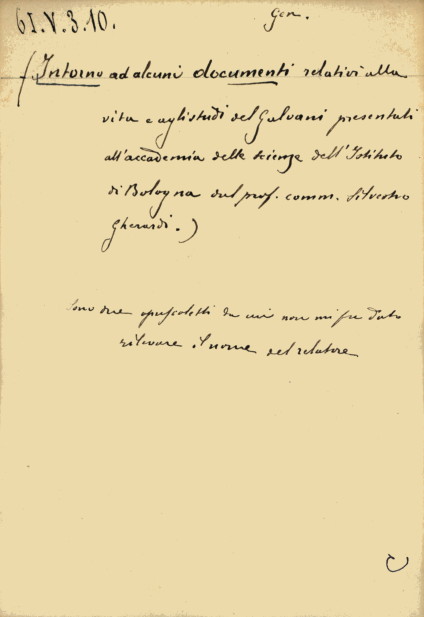 61.V.3.10.
Gen.
(Intorno ad alcuni documenti relativi alla
vita e agli studi del Galvani presentati
all'accademia delle scienze dell'Istituto
di Bologna dal prof. comm. Silvestro
Gherardi.)
Sono due opuscoletti da cui non mi fu dato
rilevare il nome del relatore